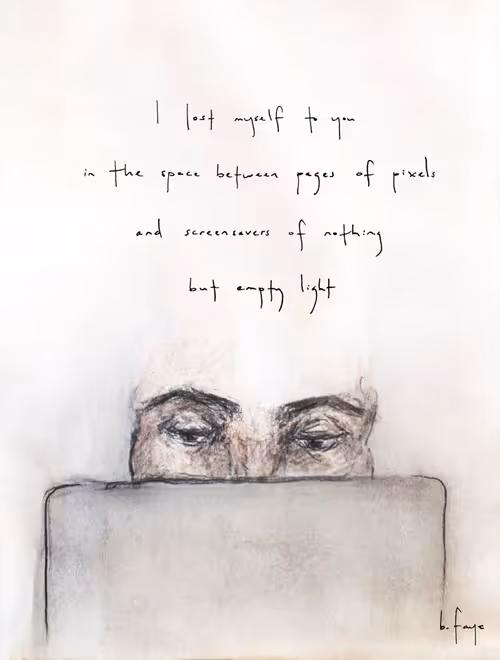 I lost myself to you
in the space between pages of pixels
and screensavers of nothing
but empty light
b. faye